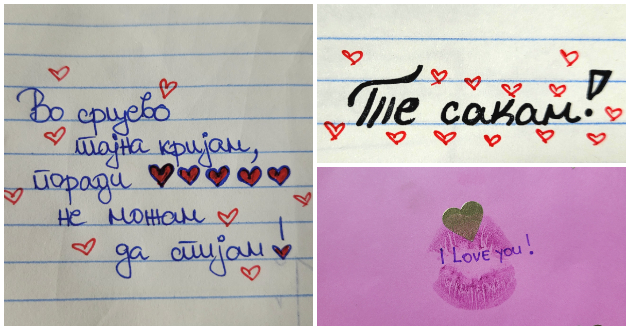 Во срцево
тајна кријам,
поради
не можам
да спијам!
Те сакам!
I Love you!